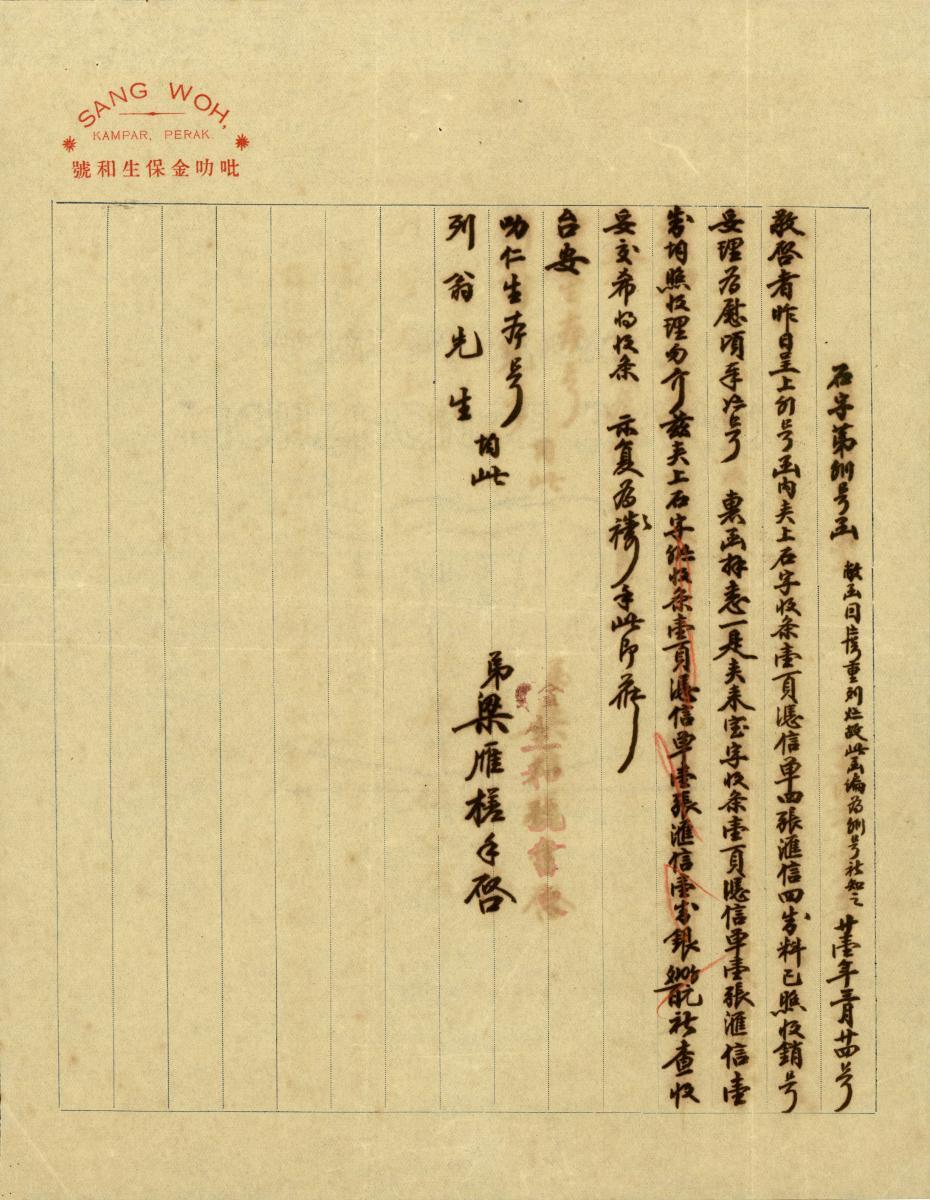 SANG WOH,
KAMPAR, PERAK.
號和生保金叻吡
石字第 號函 敝函 重列 故此函編為 號祈知之 廿壹年三月廿四号
敬啓者昨日呈上 号函內夾上石字收条壹頁憑信单四張滙信四封料已照收銷号
妥理為慰頃奉 号 惠函拜悉一是夾来宝字收条壹頁憑信单壹張滙信壹
封均照收理勿介茲夾上石字 收条壹頁憑信单壹張滙信壹封銀 元祈查收
妥交希收条 示复為禱手此即頌
台安
叻仁生本号
列翁先生 均此
弟梁雁槎手啓
金 生和號書柬